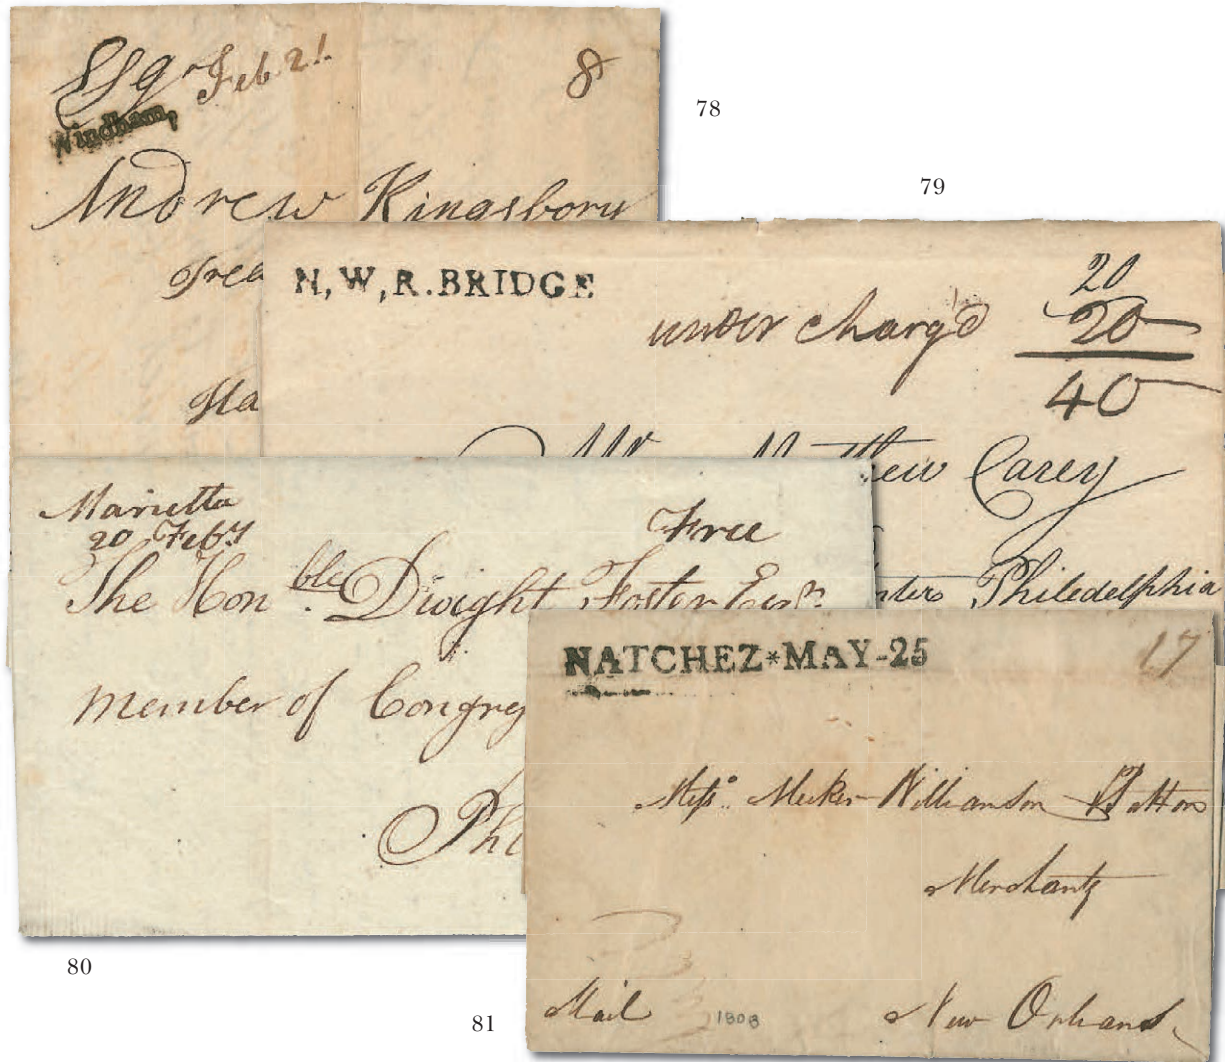 Esqr Feb 21. 8
Windham,
78
Andrew Kingsbory
Trea
Sta
79
N,W,R.BRIDGE
under charg'd
20
20
40
Mr. Matthew Carey
Philedelphia
Marietta
20 Feby
Free
The Honble Dwight Foster Esqr.
member of Congres
Phi
80
NATCHEZ*MAY-25 17
Messs. Meeker Williamson & Patton
Merchants
Mail 1808 New Orleans
81